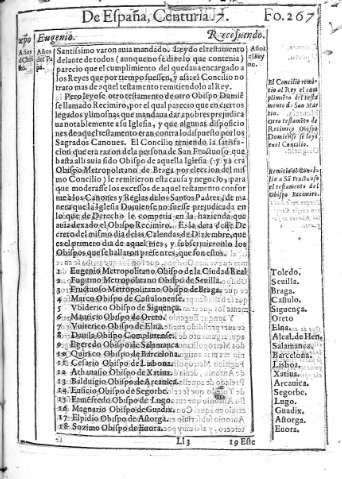 De España, Centuria 7. Fo. 267
Eugenio. Recesuindo.
Santissimo varon fue mandado. Leydo el testamento
delante de todos (aunque no se dize lo que contenia)
parecio que el cumplimiento del quedaua encargado a
los Reyes que por tiempo fuessen, y assi el Concilio no
trato mas de aquel testamento remitiendolo al Rey.
Pero leyose otro testamento de otro Obispo Dumiē
se llamado Recimiro, por el qual parecio que en ciertos
legados y limosnas que mandaua dar a pobres prejudica
ua notablemente a su Iglesia, y que algunas disposicio
nes de aquel testamento eran contra lo dispuesto por los
Sagrados Canones. El Concilio teniendo la satisfa-
cion que era razon de la persona de San Fructuoso que
estaua alli
Obispo Metropolitano de Braga por eleccion del mis
mo Concilio) le remitieron esta causa y negocio, para
que moderasse los excessos de aquel testamento confor
me a los Canones y Reglas de los Santos Padres, de ma
nera que la Iglesia Dumiense no fuesse perjudicada en
lo que de Derecho le competia en la hazienda que
auia dexado el Obispo Recimiro. Es la data deste De
creto del mismo dia de las Calendas de Diziembre, que
es el primero dia de aquel mes, y subscriuieronlo los
Obispos que se hallaron presentes, que son estos.
1 Eugenio Metropolitano Obispo de la Ciudad Real
2 Fugitiuo Metropolitano Obispo de Seuilla.
3 Fructuoso Metropolitano Obispo de Braga.
4 Marco Obispo de Castulonense.
5 Vbiderico Obispo de Siguença.
6 Mauricio Obispo de Oreto.
7 Obispo de Elna.
8 Dauila Obispo Complutense.
9 Egeredo Obispo de Salamanca
10 Quirico Obispo de Barcelona.
11 Cesario Obispo de Lisbona.
12 Athanasio Obispo de Xatiua.
13 Balduigio Obispo de Arcauica.
14 Eusicio Obispo de Segorbe.
15 Obispo de Lugo.
16 Magnario Obispo de Guadix.
17 Elpidio Obispo de Astorga.
18 Sozimo Obispo de Euora.
Ll 3 19 Este
El Concilio remi-
tio al Rey el cum
plimiento del testa
mento d- San Mar
tin.
otro testamēto de
Recimiro Obispo
Dumiēse se leyo
en el Concilio.
Remite el Conci-
lio a Sā Fructuoso
el testamento del
Obispo Recimiro.
Toledo.
Seuilla.
Braga.
Castulo.
Siguença.
Oreto
Elna.
Alcal. de Hen.
Salamanca.
Barcelona.
Lisboa.
Xatiua.
Arcauica.
Segorbe.
Lugo.
Guadix.
Astorga.
Euora.